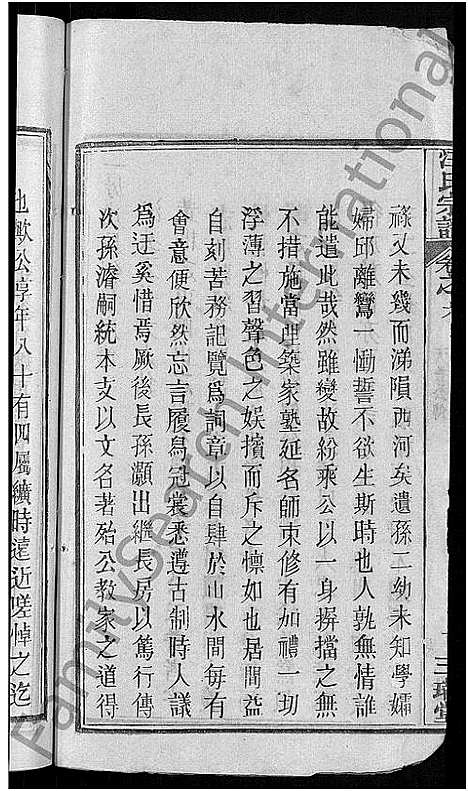 汪氏宗譜
卷之
祿又未幾而涕隕西河矣遺孫二幼未知學孀
婦邱離鸞一慟誓不欲生斯時也人孰無情誰
能遣此哉然雖變故紛乘公以一身摒擋之無
不措施當理築家塾延名師束修有加禮一切
浮薄之習聲色之娛擯而斥之懍如也居間益
自刻苦務記覽爲詞章以自肆於山水間每有
會意便欣然忘言履舄冠裳悉遵古制時人議
爲迂奚惜焉厥後長孫灝出繼長房以篤行傳
次孫濬嗣統本支以文名著殆公教家之道得
也歟公享年八十有四屬纊時遠近嗟悼之迄
FamilySearch International